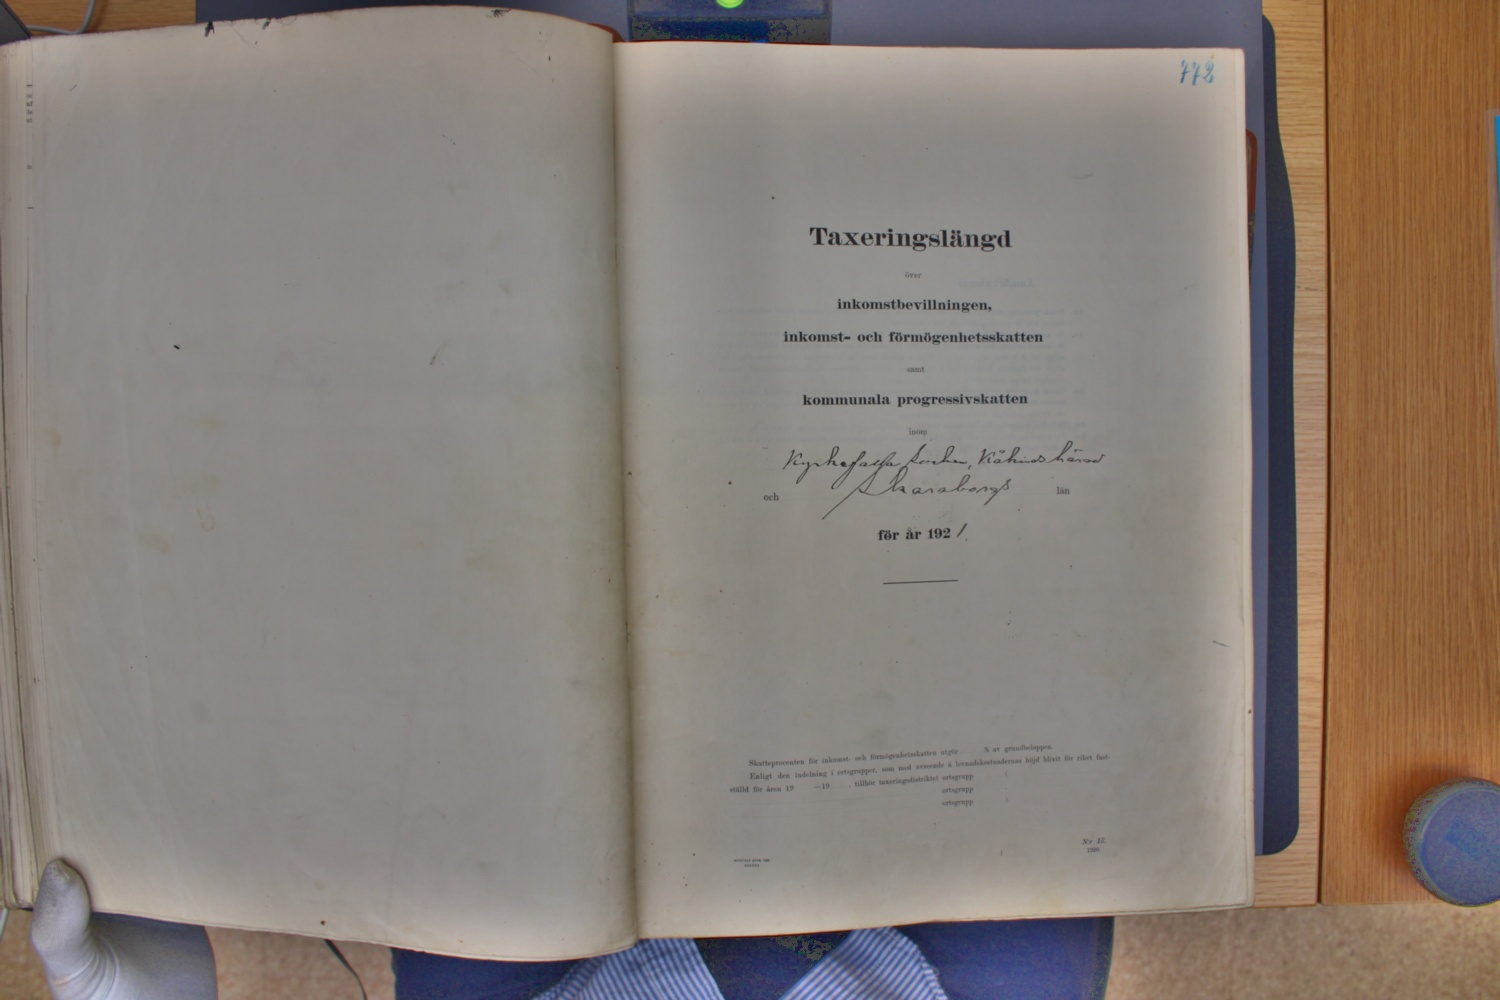 772
Taxeringslängd
över
inkomstbevillningen,
inkomst- och förmögenhetsskatten
samt
kommunala progressivskatten
inom
Kyrkefalla socken, Kåkinds härad
och Skaraborgs län
för år 1921.
Skatteprocenten för inkomst- och förmögenhetsskatten utgör % av grundbeloppen.
Enligt den indelning i ortsgrupper, som med avseende å levnadskostnadernas höjd blivit för riket fast-
ställd för åren 19 —19 , tillhör taxeringsdistriktet ortsgrupp
ortsgrupp
ortsgrupp
Nr 15.
1920.